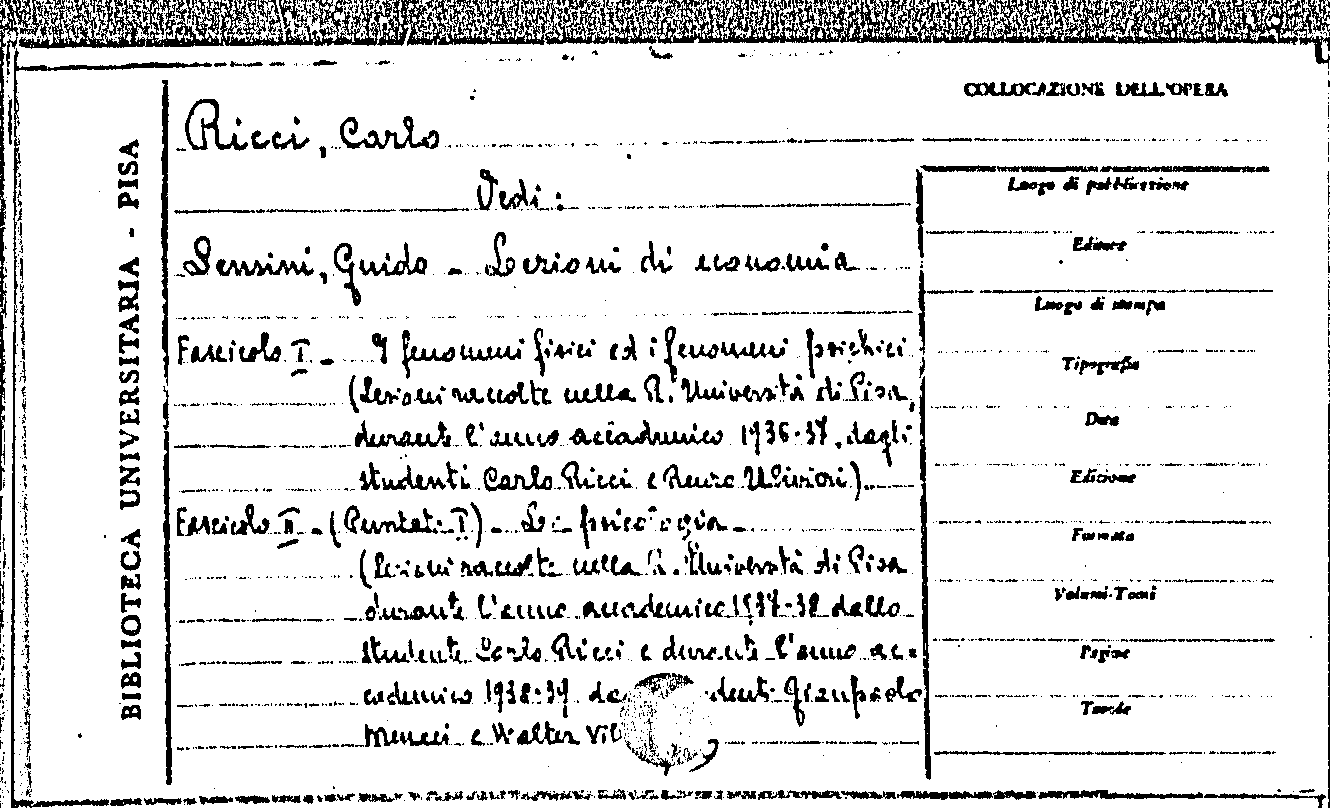 BIBLIOTECA UNIVERSITARIA - PISA
COLLOCAZIONE DELL'OPERA
Ricci, Carlo
Vedi:
Sensini, Guido - Lezioni di economia
Fascicolo I - I fenomeni fisici ed i fenomeni psichici
(Lezioni raccolte nella R. Università di Pisa,
durante l'anno accademico 1936-37, dagli
studenti Carlo Ricci e Renzo Ulivieri)
Fascicolo II - (Puntata I) - La psicologia -
(Lezioni raccolte nella R. Università di Pisa
durante l'anno accademico 1937-38 dallo
studente Carlo Ricci e durante l'anno ac=
cademico 1938-39 Gianpaolo
Meucci e Walter
Luogo di pubblicazione
Editore
Luogo di stampa
Tipografia
Data
Edizione
Formato
Volumi-Tomi
Pagine
Tavole